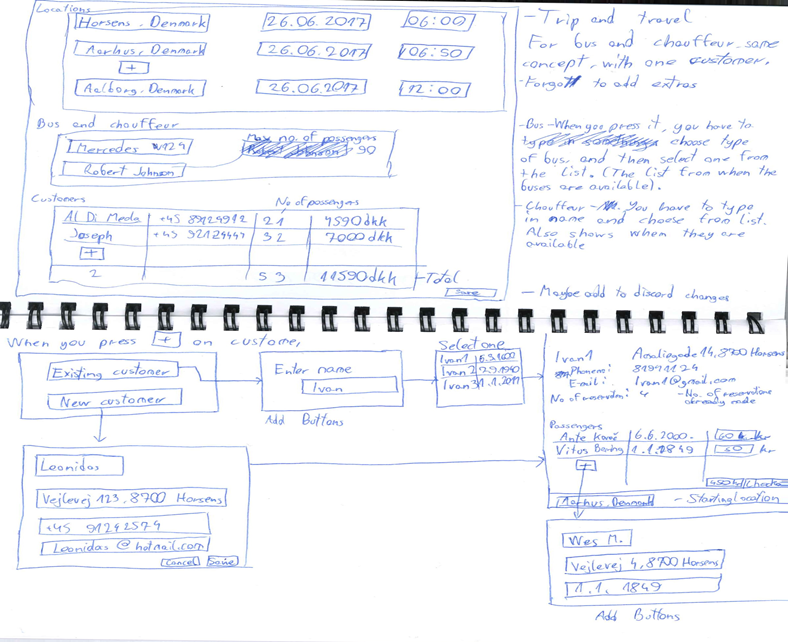 Locations
Horsens, Denmark 26.06.2017 06:00
Aarhus, Denmark 26.06.2017 06:50
+
Aalborg, Denmark 26.06.2017 12:00
Bus and chauffeur
Mercedes w124 Max no. of passengers
Robert Johnson 90
Customers No of passengers
Al Di Meola +45 89124912 21 4590dkk
Joseph +45 92124447 32 7000dkk
+
2 53 11590dkk - Total
Save
- Trip and travel
For bus and chauffeur same
concept, with one customer.
- Forgott to add extras
- Bus - When you press it, you have to
choose type
of bus, and then select one from
the list. (The list from when the
buses are available).
- Chauffeur - You have to type
in name and choose from list.
Also shows when they are
available
- Maybe add to discord changes
When you press + on customer
Existing customer
New customer
Enter name
Ivan
Add Buttons
Select one
Ivan1 5.3.2000
Ivan2 2.9.1940
Ivan3 1.1.2011
Ivan1 Amaliegade 14, 8700 Horsens
Phonenr: 81971124
E-mail: Ivan1@gmail.com
No of reservations: 4 - No. of reservations
already made
Passengers
Ante 6.6.2000. kr
Vitus Bering 1.1.1849 50 kr
+
Aarhus, Denmark - Starting location
Leonidas
Vejlevej 123, 8700 Horsens
+45 91242574
Leonidas@hotmail.com
Cancel Save
Wes M.
Vejlevej 4, 8700 Horsens
1.1. 1849
Add Buttons